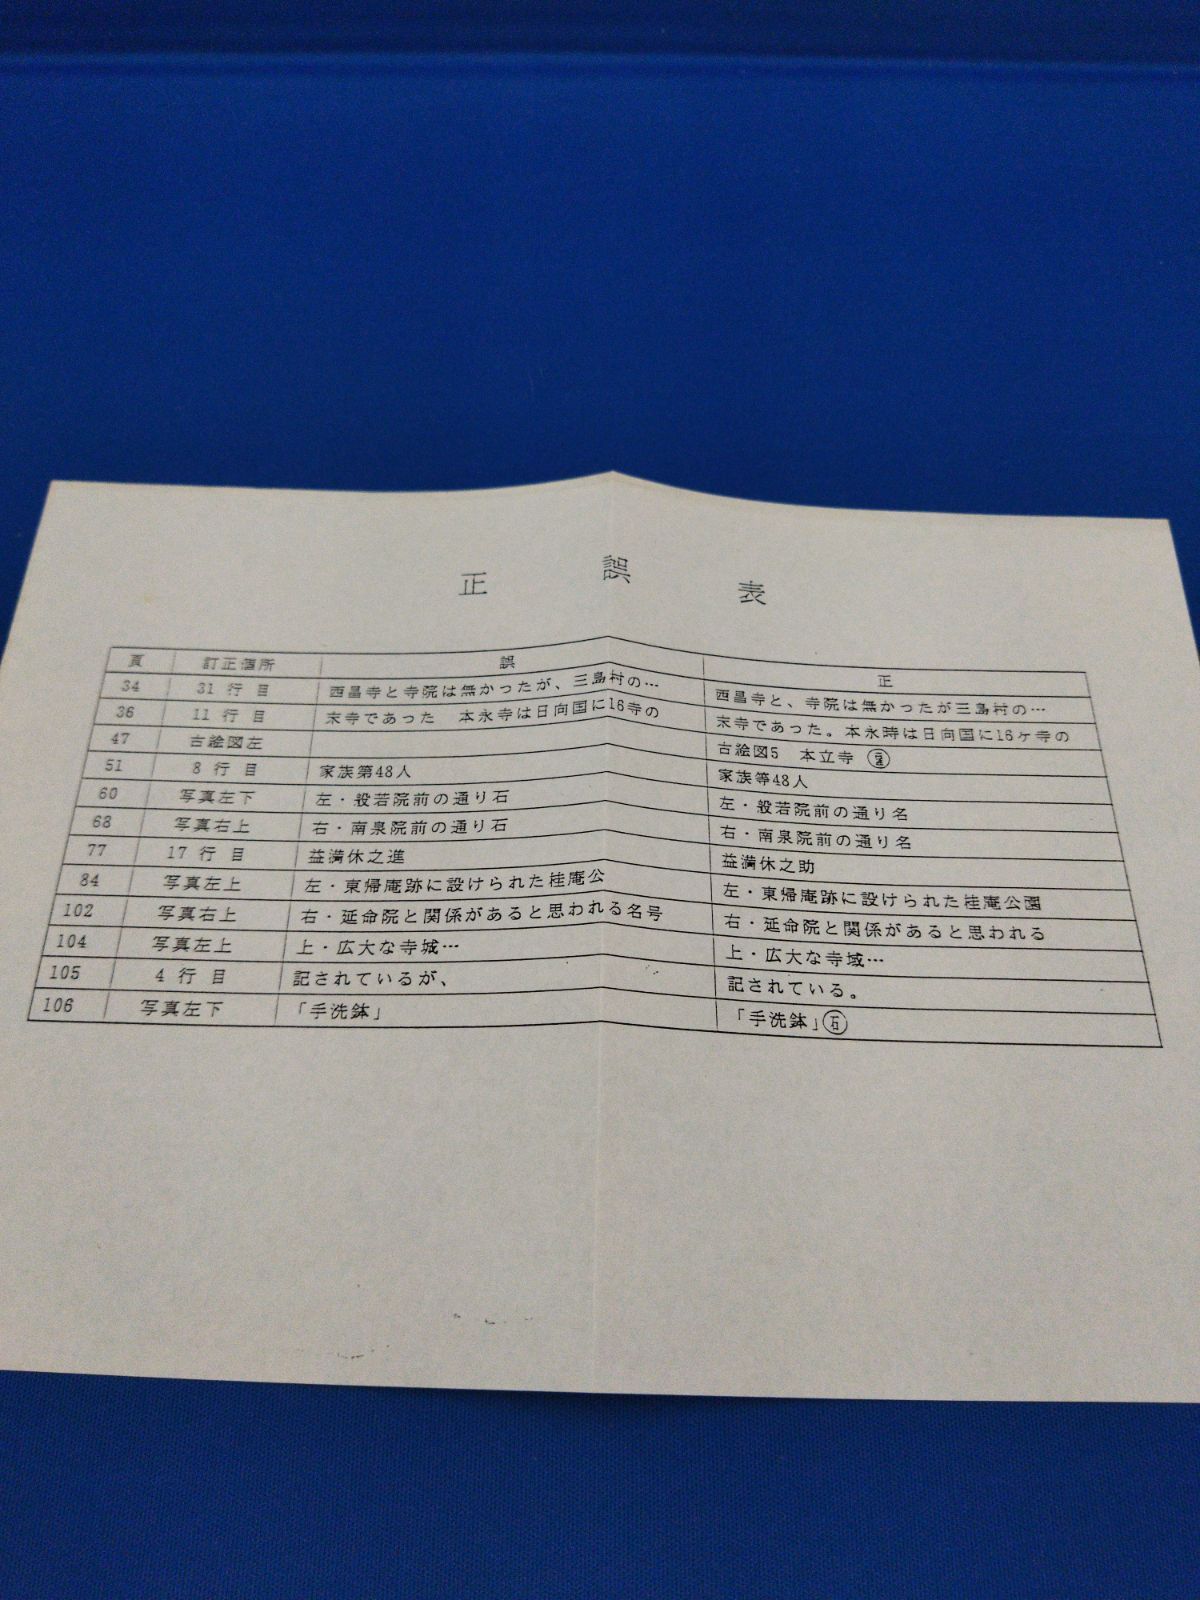 正誤表
頁 訂正個所 誤 正
34 31行目 西昌寺と寺院は無かったが、三島村の… 西昌寺と、寺院は無かったが三島村の…
36 11行目 末寺であった 本永寺は日向国に16寺の 末寺であった。本永時は日向国に16ヶ寺の
47 古絵図左 古絵図5 本立寺
51 8行目 家族第48人 家族等48人
60 写真左下 左・般若院前の通り石 左・般若院前の通り名
68 写真右上 右・南泉院前の通り石 右・南泉院前の通り名
77 17行目 益満休之進 益満休之助
84 写真左上 左・東帰庵跡に設けられた桂庵公 左・東帰庵跡に設けられた桂庵公園
102 写真右上 右・延命院と関係があると思われる名号 右・延命院と関係があると思われる
104 写真左上 上・広大な寺城… 上・広大な寺域…
105 4行目 記されているが、 記されている。
106 写真左下 「手洗鉢」 「手洗鉢」石